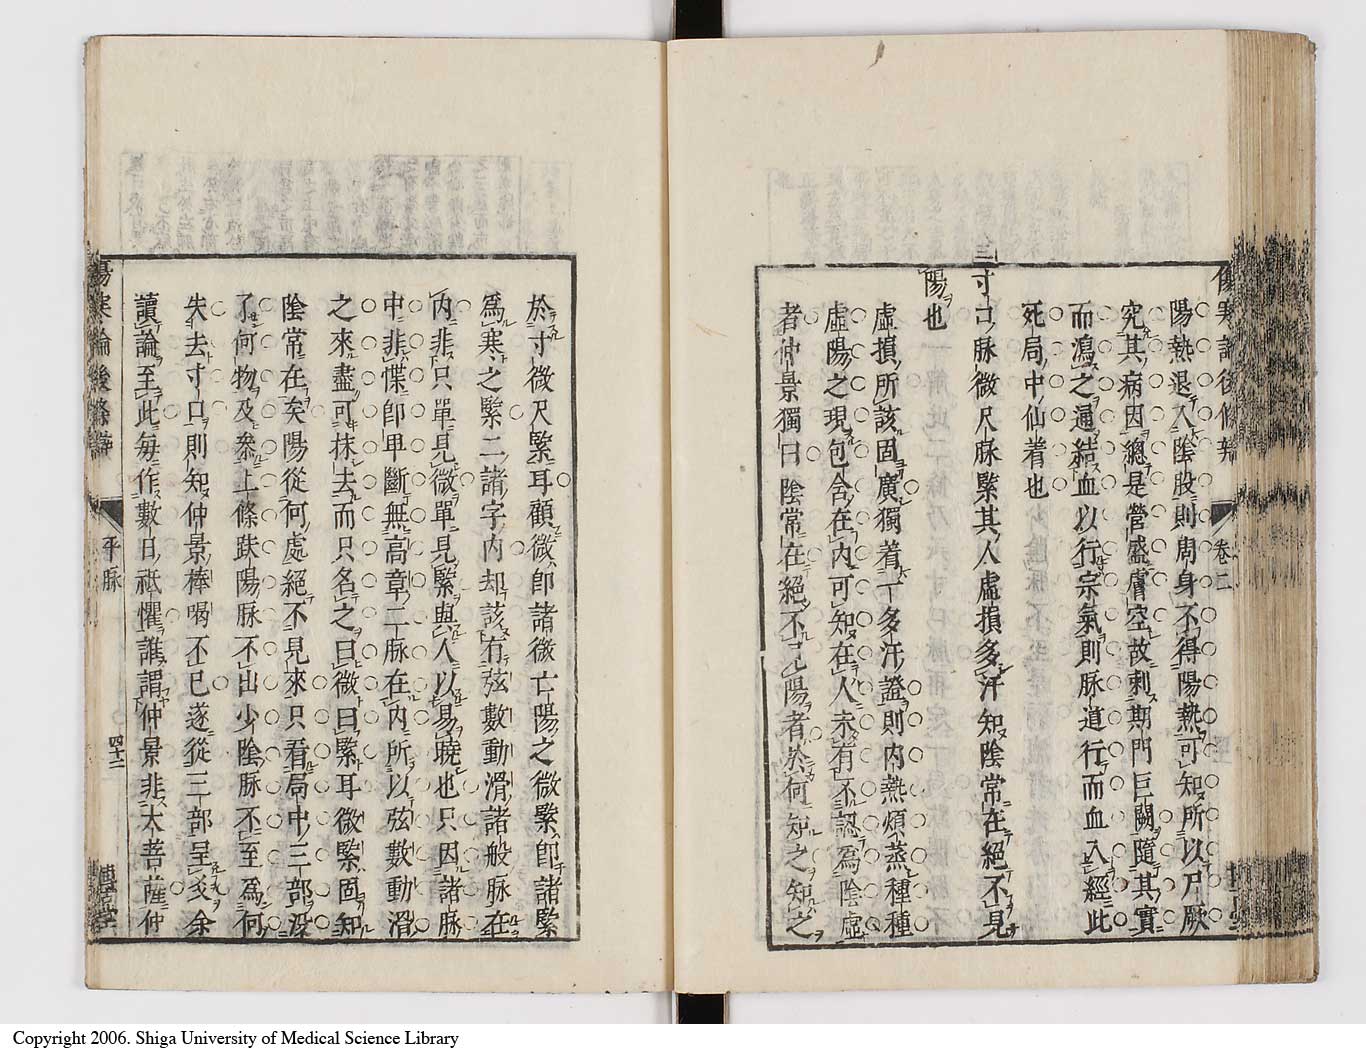 陽熱退入陰股則周身不得陽熱可知所以尸厥
究其病因總是營盛膚空故刺期門巨闕隨其實
而瀉之通結血以行宗氣則脉道行而血入經此
死局中仙着也
寸口脉微尺脉緊其人虛損多汗知陰常在絕不見
陽也
虛損所該固廣獨着一多汗證則内熱煩蒸種種
虛陽之現包含在内可知在人未有不認爲陰虛
者仲景獨曰陰常在絕不見陽者於何知之知之
卷二
於寸微尺緊耳顧微即諸微亡陽之微緊即諸緊
爲寒之緊二諸字内却該有弦數動滑諸般脉在
内非只單見微單見緊與人以易曉也只因諸脉
中非惵即卑斷無高章二脉在内所以弦數動滑
之來盡可抹去而只名之曰微曰緊耳微緊固知
陰常在矣陽從何處絕不見來只看局中三部沒
了何物及叅上條趺陽脉不出少陰脉不至爲何
失去寸口則知仲景棒喝不已遂從三部呈爻余
讀論至此每作數日祗懼誰謂仲景非大菩薩仲
傷寒論後條辯
平脉
四十二
Copyright 2006. Shiga University of Medical Science Library